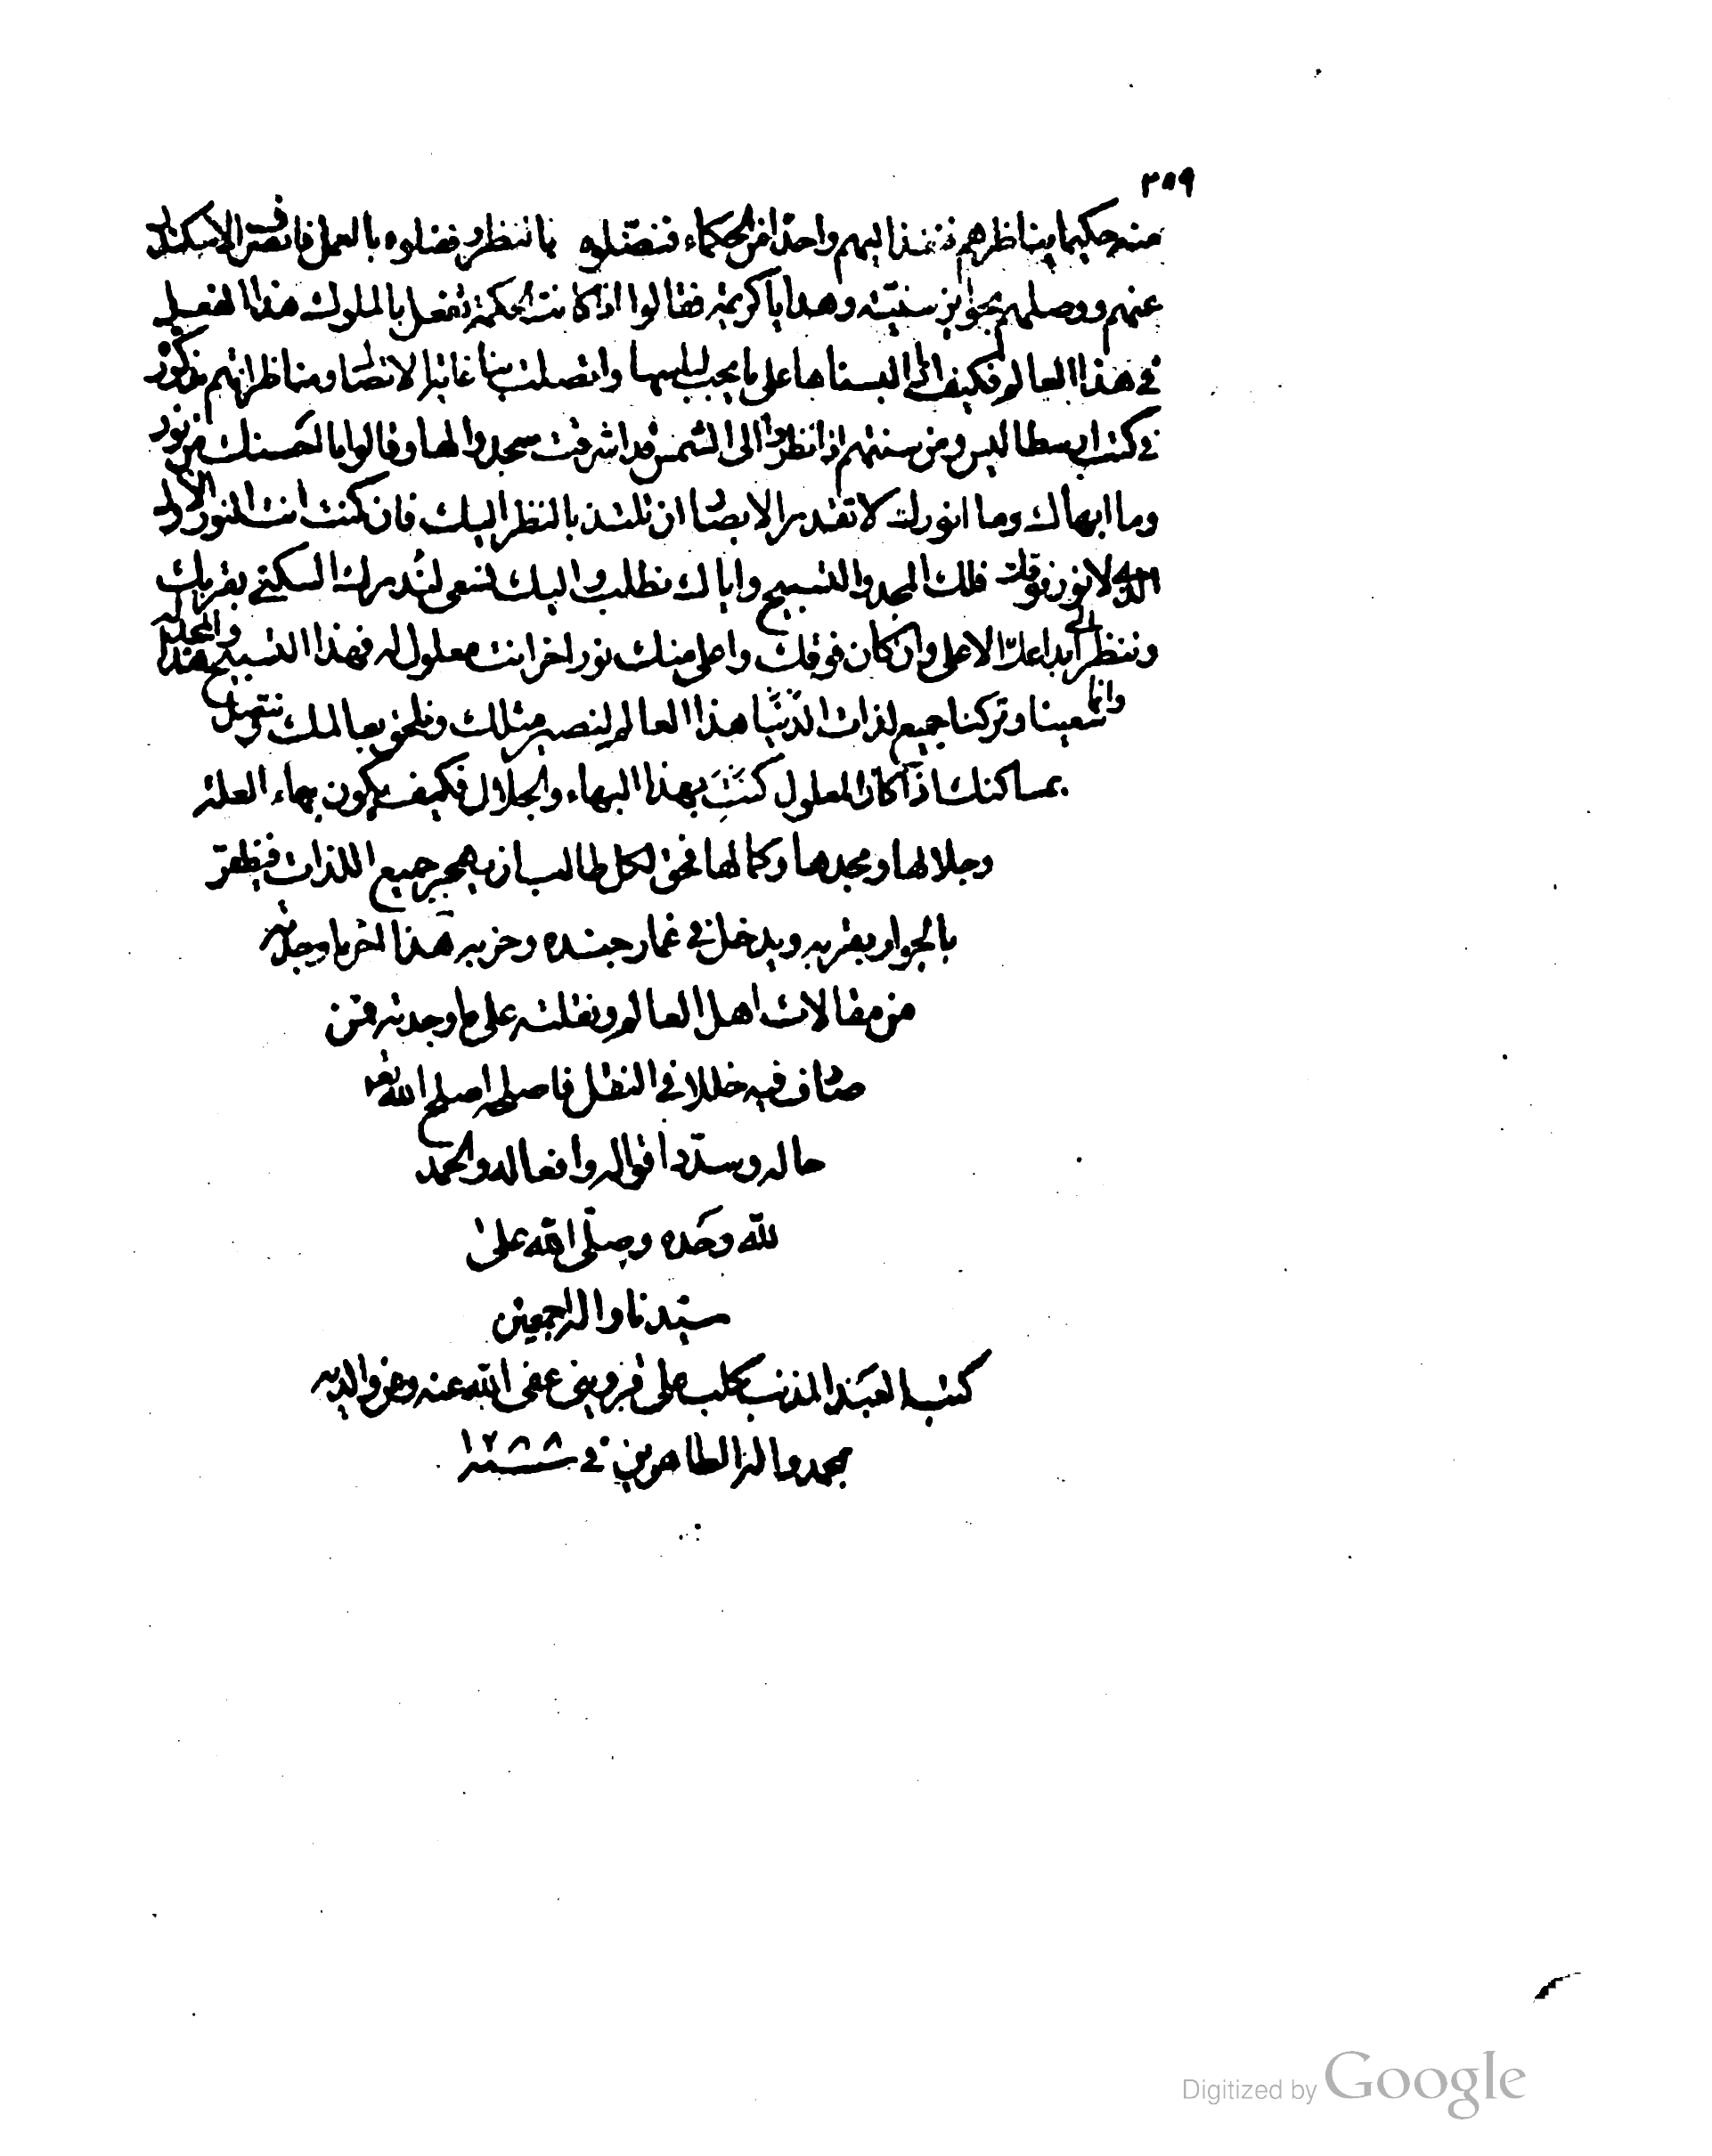 ٣٥٩
منه حكيما يناظرهم فنفذ اليهم واحدا من الحكماء فنضلوه بالنظر وفضلوه بالعمل فانصرف الاسكندر
عنهم ووصلهم بجوايز سنيته وهدايا كريمة فقالوا اذا كانت الحكمة تفعل بالملوك هذا الفعل
في هذا العالم فكيف اذا البسناها على ما يجب لباسها واتصلت بنا غاية الاتصال ومناظراتهم مذكورة
في كتب ارسطاليس ومن سنتهم اذا نظروا الى الشمس قد اشرقت سجدوا لها وقالوا ما احسنك من نور
وما ابهاك وما انورك لا تقدر الابصار ان تلتذ بالنظر اليك فان كنت انت النور الاول
الذي لا نور فوقك فلك المجد والتسبيح واياك نطلب واليك نسعى لندرك السكنى بقربك
وننظر الى ابداعك الاعلى وان كان فوقك واعلى منك نور اخر انت معلول له فهذا التسبيح وهذا المجد له
وانما سعينا وتركنا جميع لذات الدنيا هذا العالم لنصير مثلك ونلحق بعالمك ونتصل
بمساكنك اذا كان المعلول كنت بهذا البهاء والجلال فكيف يكون بهاء العلة
وجلالها ومجدها وكمالها فحق لكل طالب ان يهجر جميع اللذات فيظفر
بالجوار بقربه ويدخل في غمار جنده وحزبه هذا اخر ما وجدته
من مقالات اهل العالم ونقلته على ما وجدته فمن
صادف فيه خللا في النقل فاصلحه اصلح الله تعالى
حاله وسدد اقواله وافعاله والحمد
لله وحده وصلى الله على
سيدنا واله اجمعين
كتبه العبد المذنب كلب على قزويني عفى الله عنه وعن والديه
بمحمد واله الطاهرين في سنة ١٢٨٨
Digitized by Google